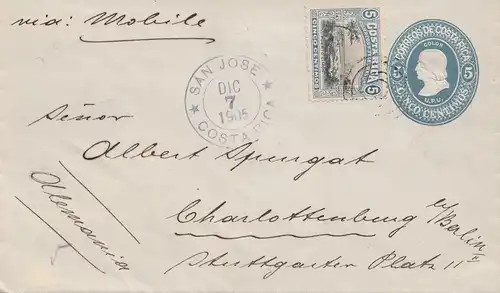 via: Mobile
SAN JOSE
DIC
7
1905
COSTA RICA
5 COSTA RICA 5
CINCO CENTIMOS
CORREOS DE COSTA RICA
COLON
5 5
U.P.U.
CINCO CENTIMOS
Señor
Albert Spungat
Charlottenburg b/Berlin
Stuttgarter Platz 11
Alemania